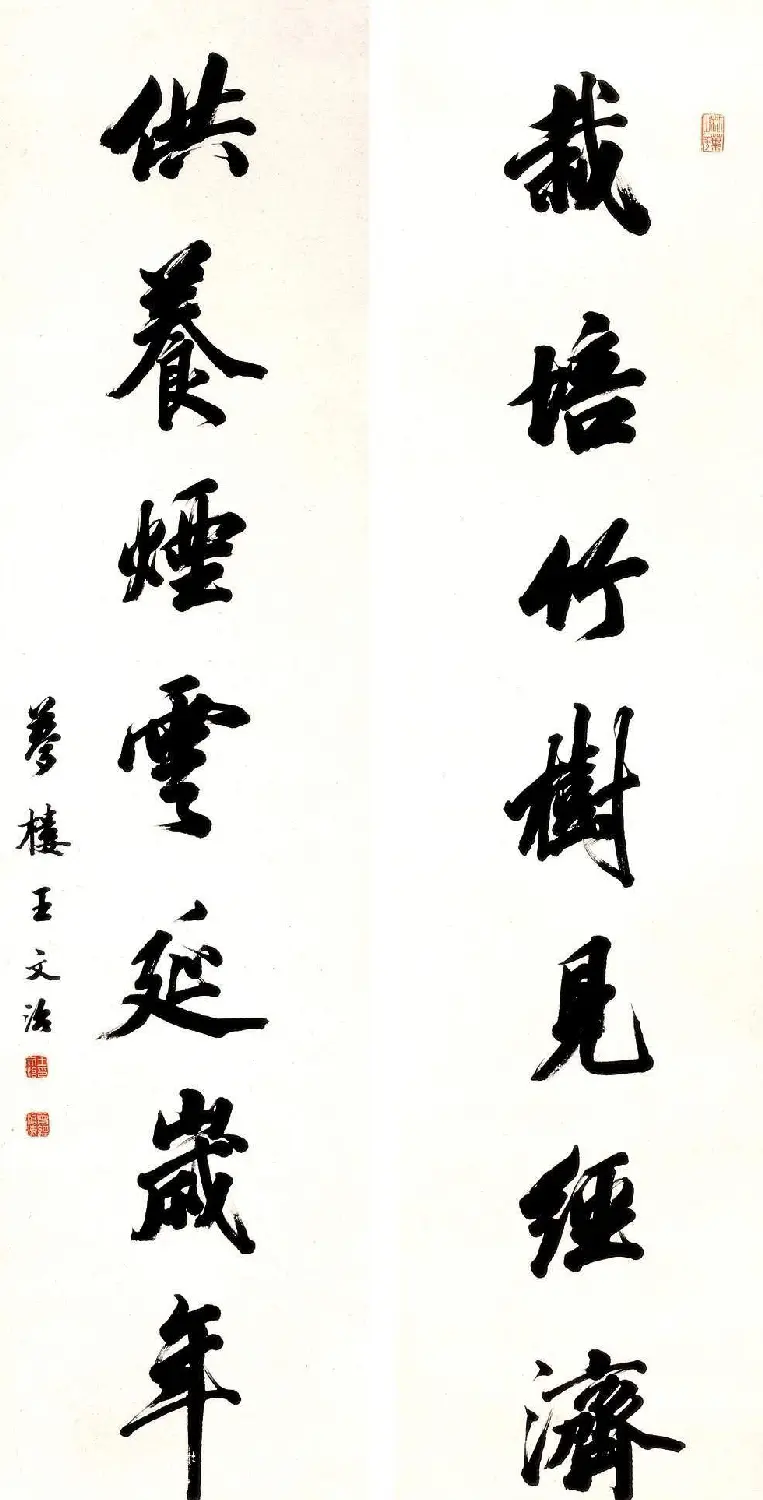 栽培竹樹見經濟
供養煙雲延歲年
夢樓王文治